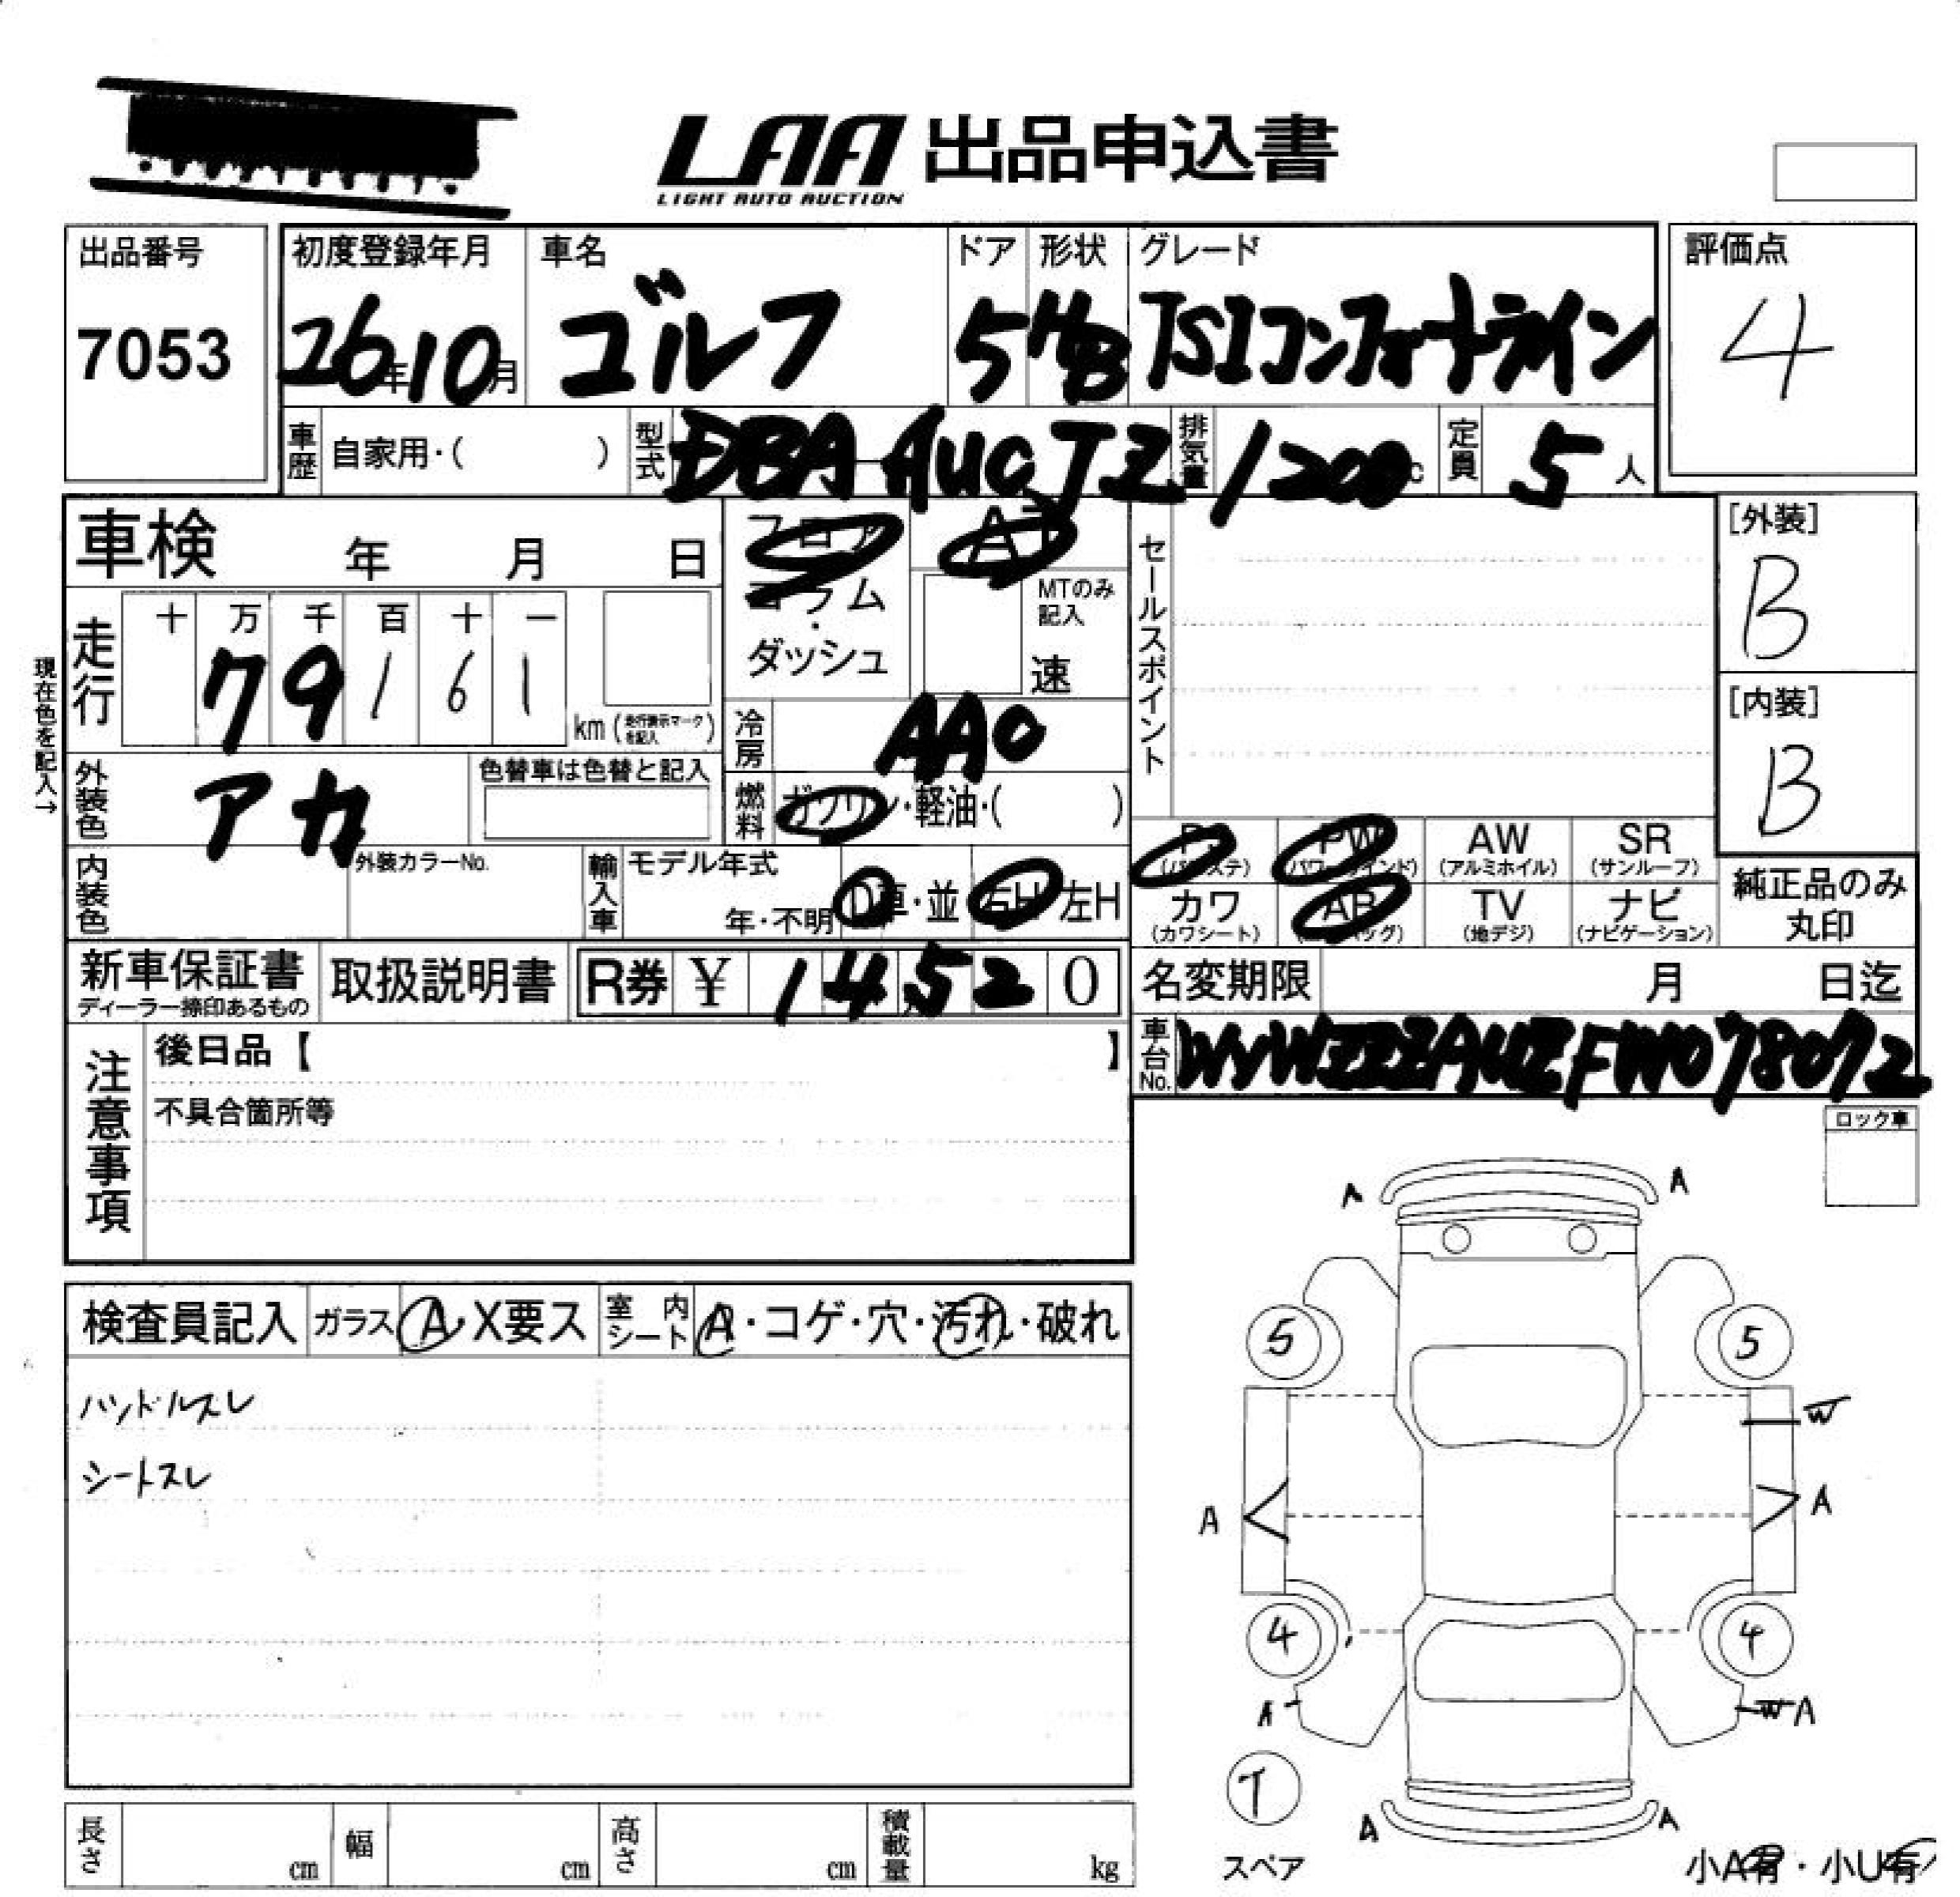 LAA 出品申込書
LIGHT AUTO AUCTION
出品番号
7053
初度登録年月
26年10月
車名
ゴルフ
ドア
5
形状
HB
グレード
TSIコンフォートライン
評価点
4
車歴
自家用・( )
型式
DBA AUCJZ
排気量
1200cc
定員
5人
車検 年 月 日
フロア
コラム
・
ダッシュ
AT
MTのみ
記入
速
セールスポイント
[外装]
B
[内装]
B
現在色を記入→
走行
十 万 千 百 十 一
7 9 1 6 1
km (走行表示マークを記入)
冷房
AAC
外装色
アカ
色替車は色替と記入
燃料
ガソリン・軽油・( )
PS (パワステ) PW (パワーウインド) AW (アルミホイル) SR (サンルーフ)
カワ (カワシート) AB (エアバッグ) TV (地デジ) ナビ (ナビゲーション)
純正品のみ
丸印
内装色
外装カラーNo.
輸入車
モデル年式
年・不明
D車・並
右H 左H
新車保証書
ディーラー捺印あるもの
取扱説明書
R券 ¥ 14520
名変期限 月 日迄
車台No.
WVWZZZAUZFW078072
注意事項
後日品【 】
不具合箇所等
ロック車
検査員記入
ガラス A X要ス
室内シート
A・コゲ・穴・汚れ・破れ
ハンドルスレ
シートスレ
A A
5 5
W
A A
4 4
A WA
T
スペア
A A
小A有・小U有
長さ cm
幅 cm
高さ cm
積載量 kg